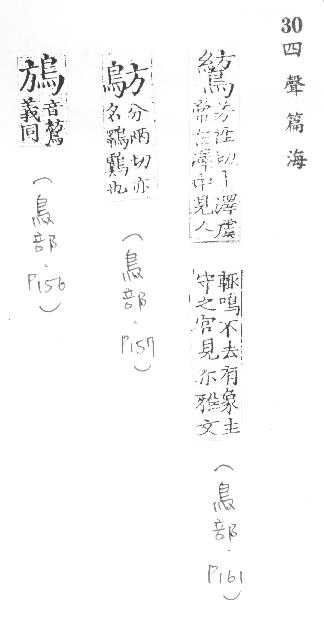 30 四聲篇海
鶭 切 澤虞
常在澤中見人
輒鳴不去有象主
守之官見尔雅文
(鳥部·P161)
䲱 分兩切亦
名 也
(鳥部·P157)
鴋 音鶭
義同
(鳥部·P156)